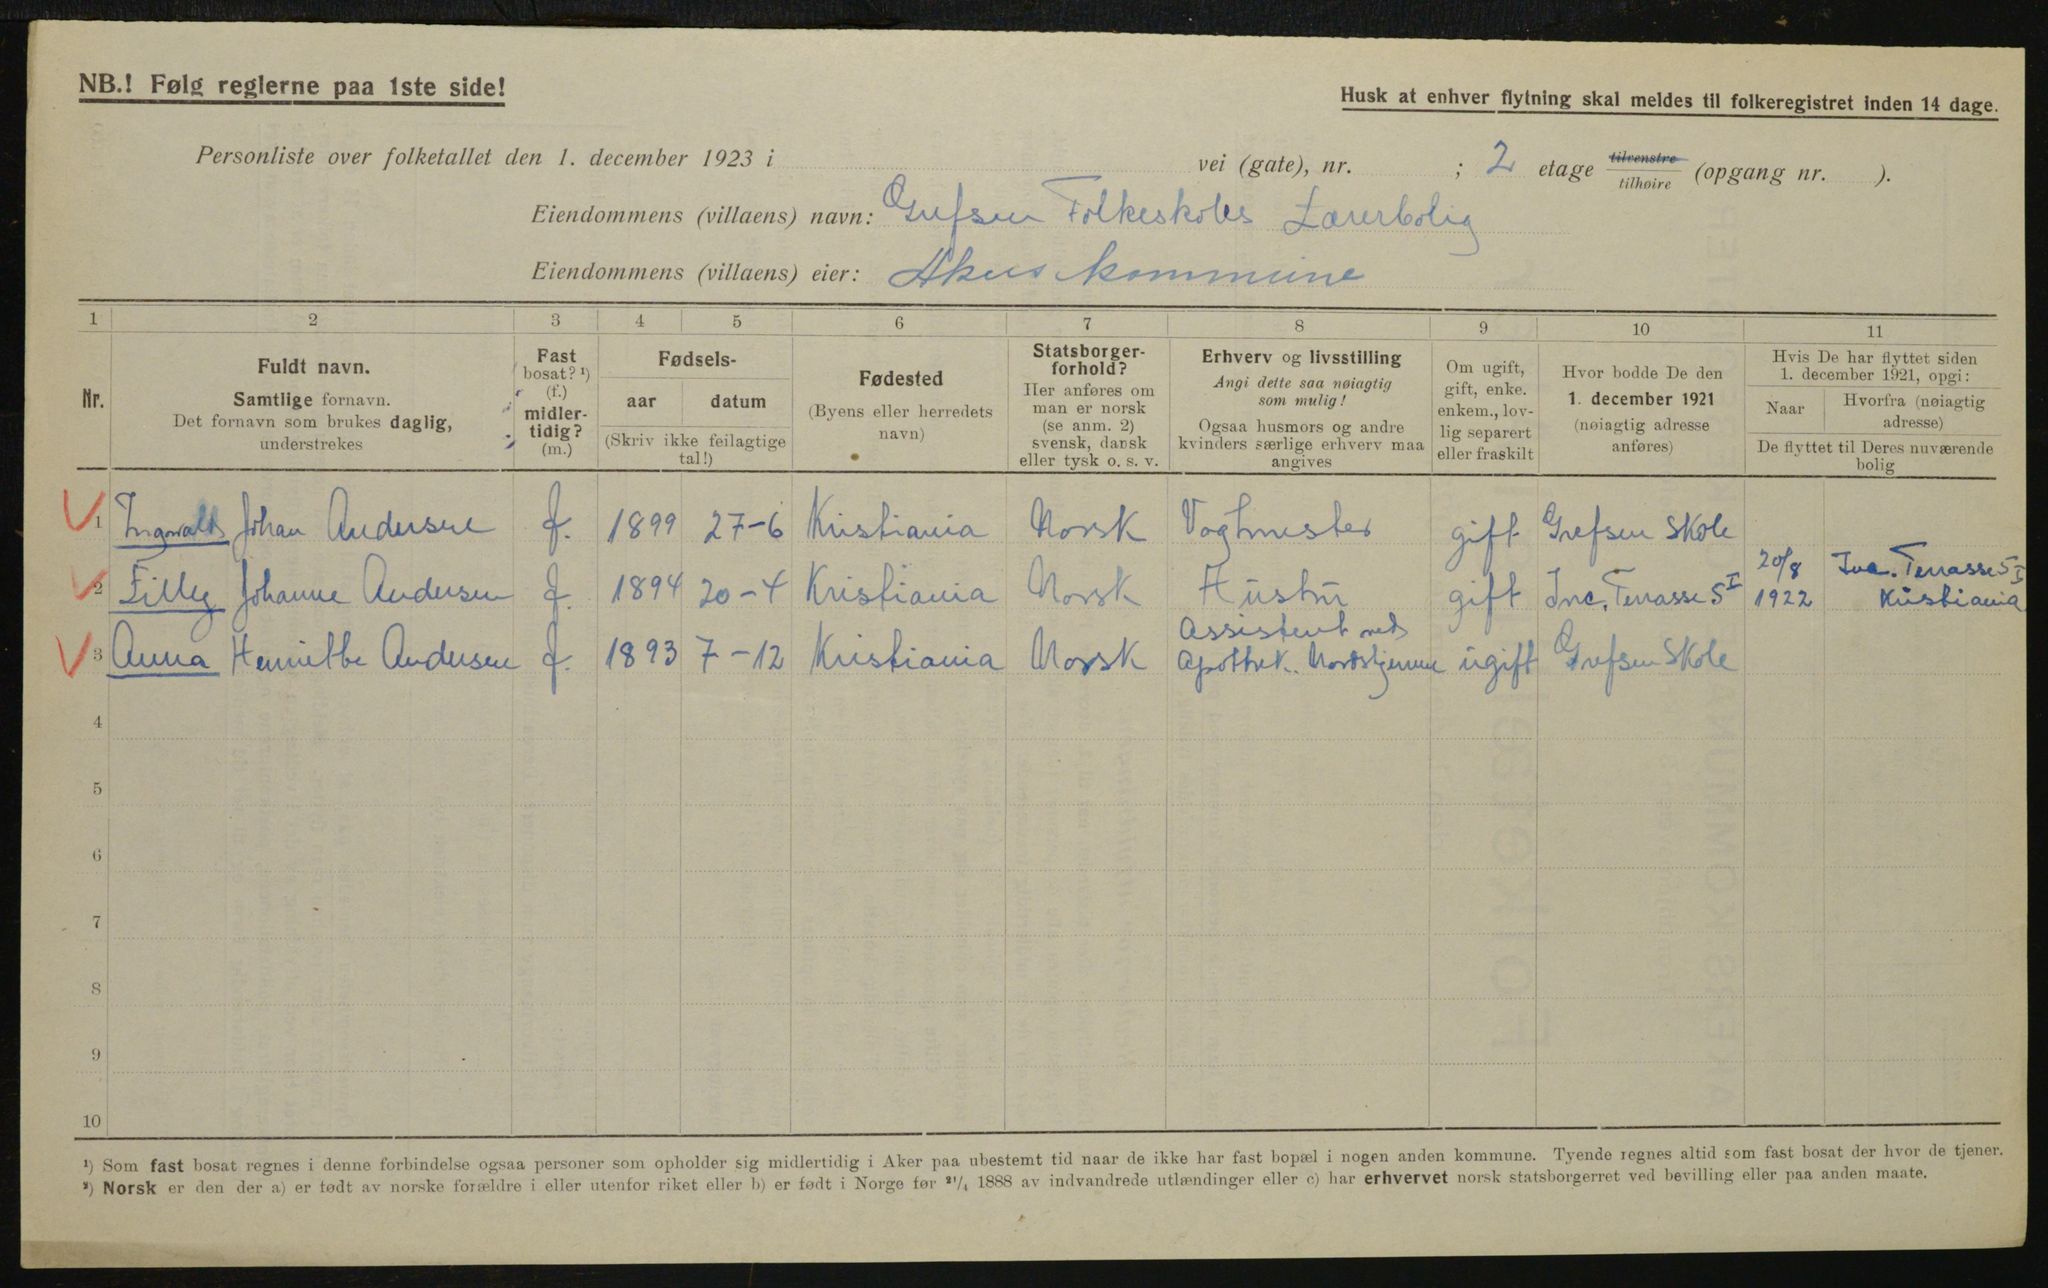 NB.! Følg reglerne paa 1ste side!
Husk at enhver flytning skal meldes til folkeregistret inden 14 dage.
Personliste over folketallet den 1. december 1923 i vei (gate), nr. ; 2 etage tilvenstre tilhøire (opgang nr. ).
Eiendommens (villaens) navn: Grefsen Folkeskoles Lærerbolig
Eiendommens (villaens) eier: Akers kommune
1 2 3 4 5 6 7 8 9 10 11
Nr.
Fuldt navn.
Samtlige fornavn.
Det fornavn som brukes daglig,
understrekes
Fast
bosat? ¹)
(f.)
midler-
tidig?
(m.)
Fødsels-
aar datum
(Skriv ikke feilagtige
tal!)
Fødested
(Byens eller herredets
navn)
Statsborger-
forhold?
Her anføres om
man er norsk
(se anm. 2)
svensk, dansk
eller tysk o. s. v.
Erhverv og livsstilling
Angi dette saa nøiagtig
som mulig!
Ogsaa husmors og andre
kvinders særlige erhverv maa
angives
Om ugift,
gift, enke.
enkem., lov-
lig separert
eller fraskilt
Hvor bodde De den
1. december 1921
(nøiagtig adresse
anføres)
Hvis De har flyttet siden
1. december 1921, opgi:
Naar
Hvorfra (nøiagtig
adresse)
De flyttet til Deres nuværende
bolig
1 Johan Andersen f. 1899 27-6 Kristiania Norsk gift Grefsen Skole
2 Johanne Andersen f. 1894 20-4 Kristiania Norsk Hustru gift Terrasse 5 I 20/8 1922 Terrasse 5 I Kristiania
3 Anna Henriette Andersen f. 1893 7-12 Kristiania Norsk Assistent ved Apothek. Nordstjernen ugift Grefsen Skole
4
5
6
7
8
9
10
¹) Som fast bosat regnes i denne forbindelse ogsaa personer som opholder sig midlertidig i Aker paa ubestemt tid naar de ikke har fast bopæl i nogen anden kommune. Tyende regnes altid som fast bosat der hvor de tjener.
²) Norsk er den der a) er født av norske forældre i eller utenfor riket eller b) er født i Norge før ²¹/₄ 1888 av indvandrede utlændinger eller c) har erhvervet norsk statsborgerret ved bevilling eller paa anden maate.